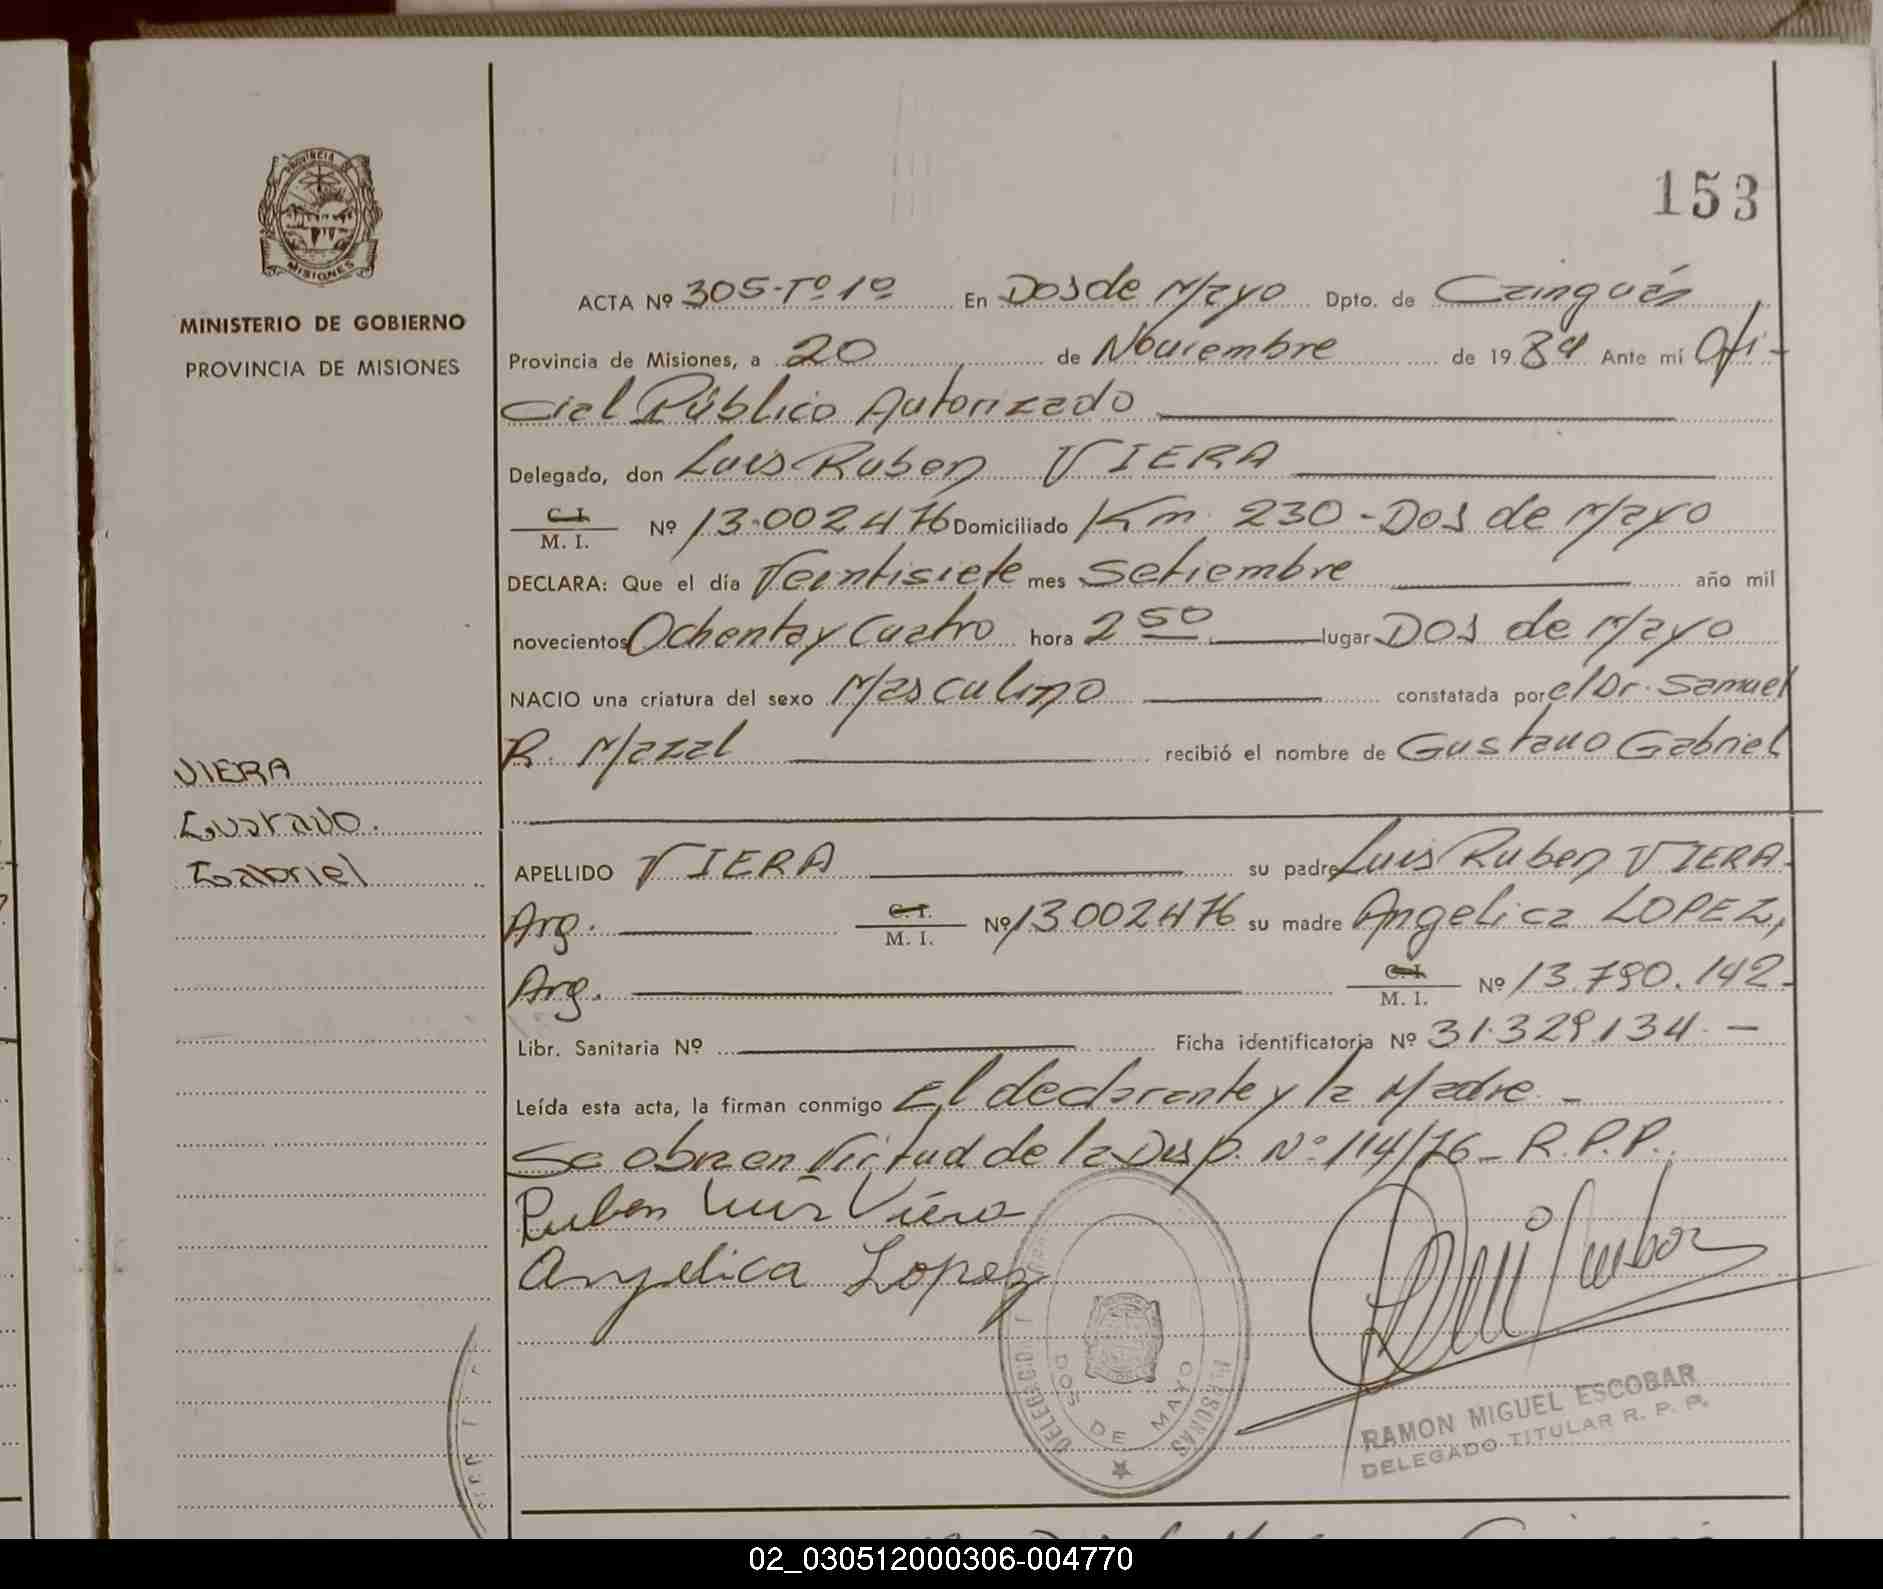 153
PROVINCIA DE
MISIONES
MINISTERIO DE GOBIERNO
PROVINCIA DE MISIONES
ACTA Nº 305-Tº 1º En Dos de Mayo Dpto. de Cainguás
Provincia de Misiones, a 20 de Noviembre de 1984 Ante mí Ofi-
cial Público Autorizado
Delegado, don Luis Ruben VIERA
C. I.
M. I. Nº 13.002476 Domiciliado Km. 230 - Dos de Mayo
DECLARA: Que el día Veintisiete mes Setiembre año mil
novecientos Ochenta y Cuatro hora 2 50 lugar Dos de Mayo
NACIO una criatura del sexo Masculino constatada por el Dr. Samuel
R. Mazal recibió el nombre de Gustavo Gabriel
VIERA
Gustavo.
Gabriel
APELLIDO VIERA su padre Luis Ruben VIERA.
Arg. C. I.
M. I. Nº 13002476 su madre Angelica LOPEZ,
Arg. C. I.
M. I. Nº 13.790.142.
Libr. Sanitaria Nº Ficha identificatoria Nº 31.329.134. -
Leída esta acta, la firman conmigo El declarante y la Madre. -
Se obra en Virtud de la Disp. Nº 114/76 - R.P.P.
Ruben Luis Viera
Angelica Lopez
DOS DE MAYO
RAMON MIGUEL ESCOBAR
DELEGADO TITULAR R. P. P.
02_030512000306-004770